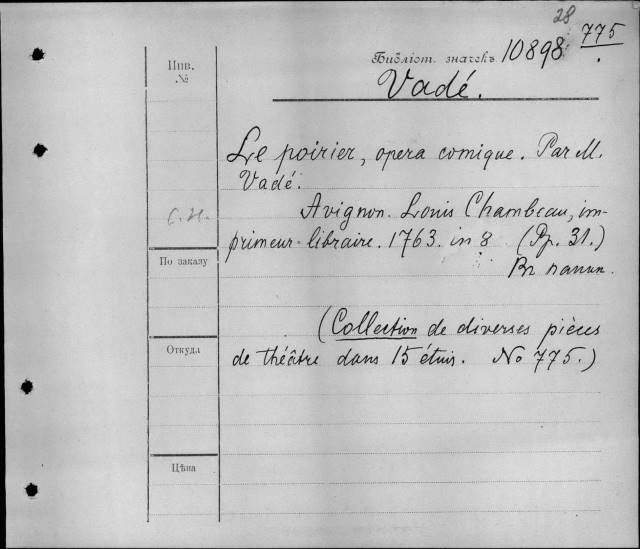 28
775
Библіот. значекъ 10898
Инв.
№
Vadé.
Le poirier, opera comique. Par M.
Vadé.
С.Н.
Avignon. Louis Chambeau, im-
primeur-libraire. 1763. in 8 (Pp. 31.)
По заказу
Въ папкѣ.
(Collection de diverses pièces
Откуда
de théâtre dans 15 étuis. No 775.)
Цѣна